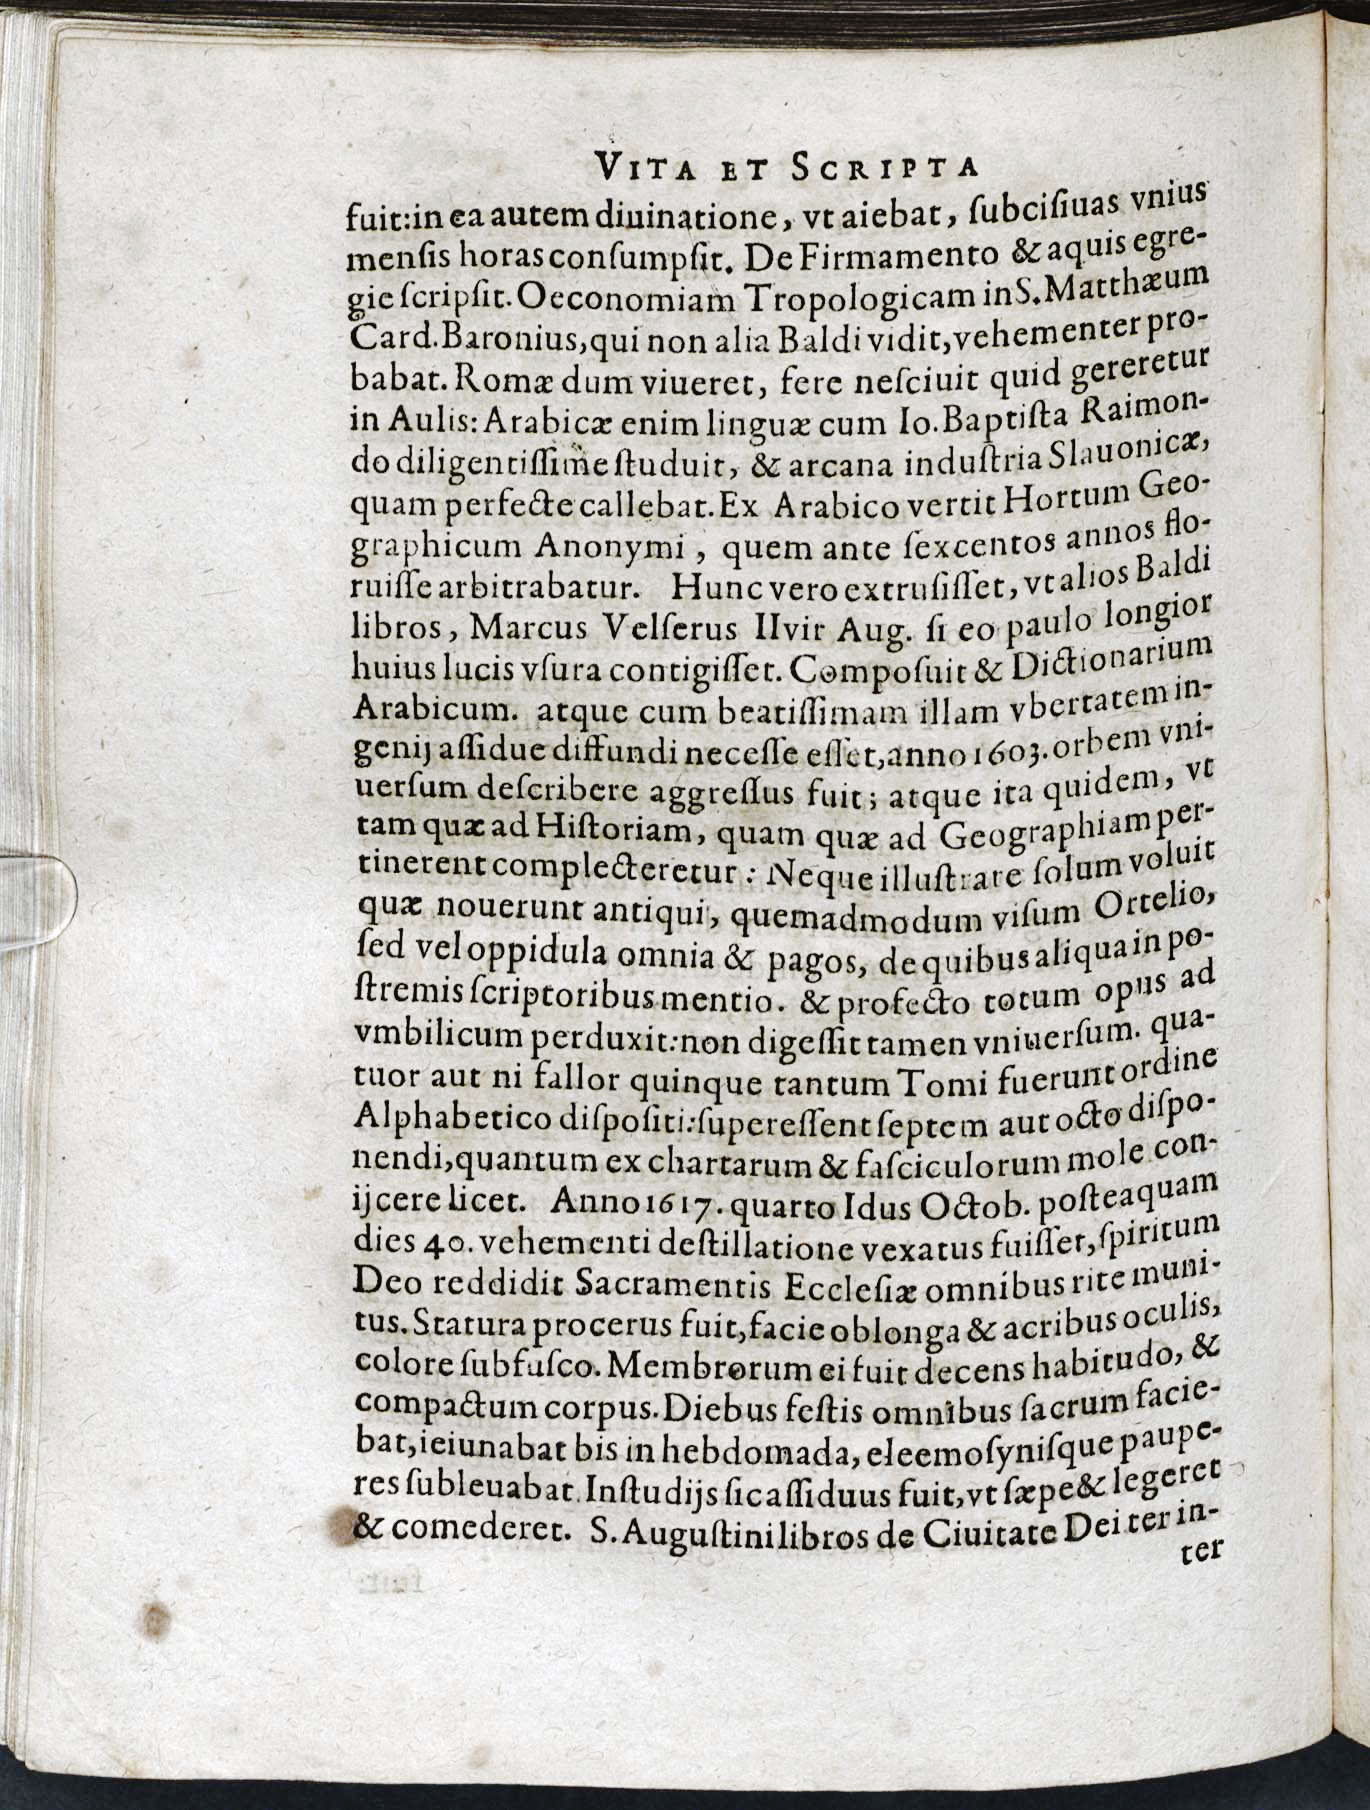 VITA ET SCRIPTA
fuit: in ea autem diuinatione, vt aiebat, ſubciſiuas vnius
menſis horas conſumpſit. De Firmamento & aquis egre-
gie ſcripſit. Oeconomiam Tropologicam in S. Matthæum
Card. Baronius, qui non alia Baldi vidit, vehementer pro-
babat. Romæ dum viueret, fere neſciuit quid gereretur
in Aulis: Arabicæ enim linguæ cum Io. Baptiſta Raimon-
do diligentiſſime ſtuduit, & arcana induſtria Slauonicæ,
quam perfecte callebat. Ex Arabico vertit Hortum Geo-
graphicum Anonymi, quem ante ſexcentos annos flo-
ruiſſe arbitrabatur. Hunc vero extruſiſſet, vt alios Baldi
libros, Marcus Velſerus IIvir Aug. ſi eo paulo longior
huius lucis vſura contigiſſet. Compoſuit & Dictionarium
Arabicum. atque cum beatiſſimam illam vbertatem in-
genij aſſidue diffundi neceſſe eſſet, anno 1603. orbem vni-
uerſum deſcribere aggreſſus fuit; atque ita quidem, vt
tam quæ ad Hiſtoriam, quam quæ ad Geographiam per-
tinerent complecteretur: Neque illuſtrare ſolum voluit
quæ nouerunt antiqui, quemadmodum viſum Ortelio,
ſed vel oppidula omnia & pagos, de quibus aliqua in po-
ſtremis ſcriptoribus mentio. & profecto totum opus ad
vmbilicum perduxit: non digeſſit tamen vniuerſum. qua-
tuor aut ni fallor quinque tantum Tomi fuerunt ordine
Alphabetico diſpoſiti: ſupereſſent ſeptem aut octo diſpo-
nendi, quantum ex chartarum & faſciculorum mole con-
ijcere licet. Anno 1617. quarto Idus Octob. poſteaquam
dies 40. vehementi deſtillatione vexatus fuiſſet, ſpiritum
Deo reddidit Sacramentis Eccleſiæ omnibus rite muni-
tus. Statura procerus fuit, facie oblonga & acribus oculis,
colore ſubfuſco. Membrorum ei fuit decens habitudo, &
compactum corpus. Diebus feſtis omnibus ſacrum facie-
bat, ieiunabat bis in hebdomada, eleemoſyniſque paupe-
res ſubleuabat. In ſtudijs ſic aſſiduus fuit, vt ſæpe & legeret
& comederet. S. Auguſtini libros de Ciuitate Dei ter in-
ter